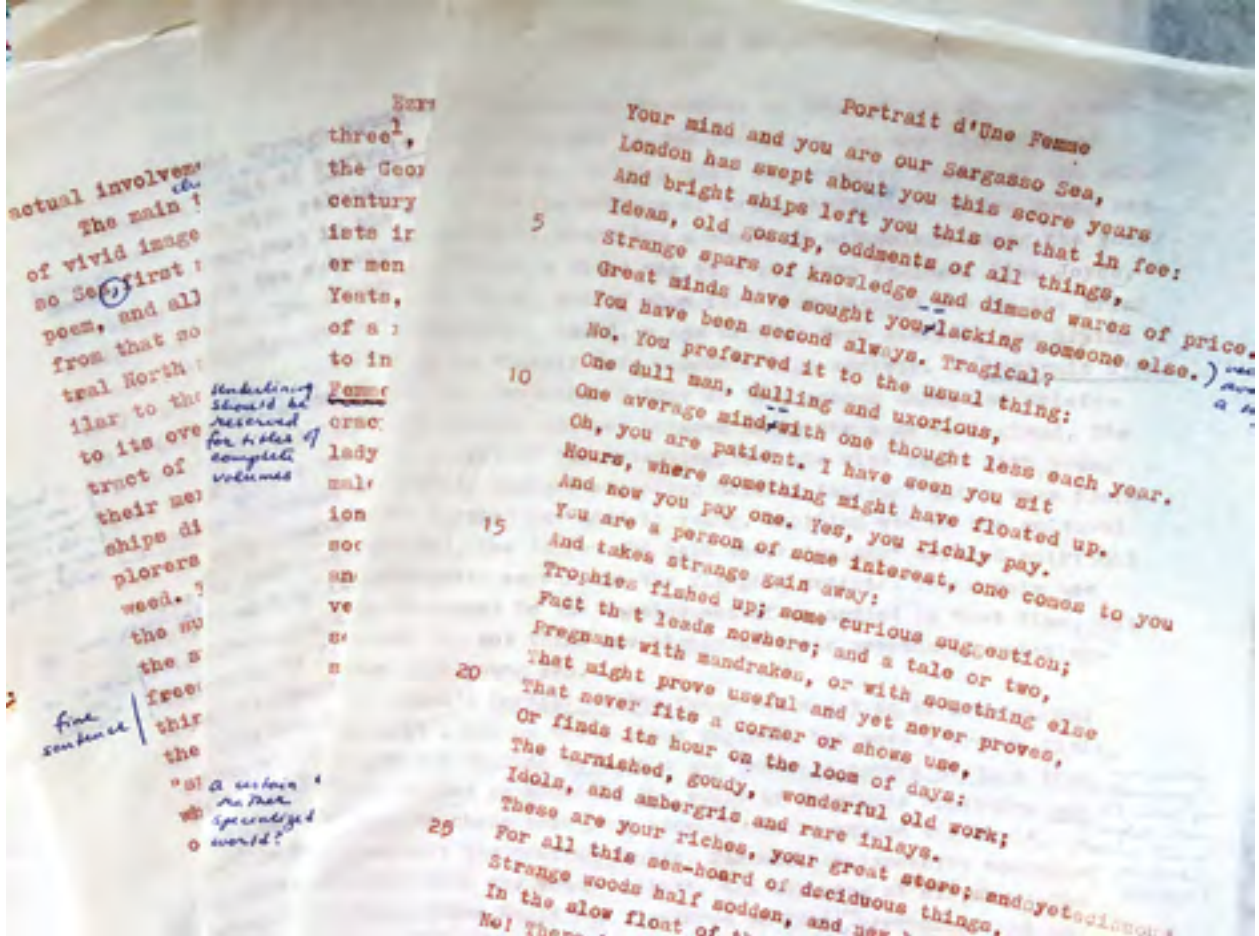 actual involvem
The main t
of vivid image
so Sea, first
poem, and all
from that so
tral North
ilar to the
to its ove
tract of
their mer
ships di
plorers
weed.
the su
the s
free
thir
the
"s
wh
o
fine
sentence
Ezra
three1,
the Geor
century
ists ir
er men
Yeats,
of a
to in
Femme
crac
lady
male
ion
soc
an
ve
s
Underlining
should be
reserved
for titles of
complete
volumes
a certain
rather
specialized
world?
Portrait d'Une Femme
Your mind and you are our Sargasso Sea,
London has swept about you this score years
And bright ships left you this or that in fee:
Ideas, old gossip, oddments of all things,
5 Strange spars of knowledge and dimmed wares of price.
Great minds have sought you, lacking someone else.)
You have been second always. Tragical?
No. You preferred it to the usual thing:
One dull man, dulling and uxorious,
10 One average mind, with one thought less each year.
Oh, you are patient. I have seen you sit
Hours, where something might have floated up.
And now you pay one. Yes, you richly pay.
You are a person of some interest, one comes to you
15 And takes strange gain away:
Trophies fished up; some curious suggestion;
Fact that leads nowhere; and a tale or two,
Pregnant with mandrakes, or with something else
That might prove useful and yet never proves,
20 That never fits a corner or shows use,
Or finds its hour on the loom of days:
The tarnished, goudy, wonderful old work;
Idols, and ambergris and rare inlays.
These are your riches, your great store; and yet
25 For all this sea-hoard of deciduous things,
Strange woods half sodden, and new
In the slow float of
No! There